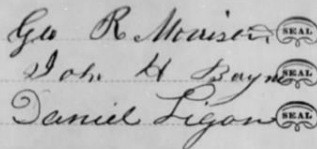 Geo R Morison SEAL
Joh. H Bayne SEAL
Daniel Ligon SEAL